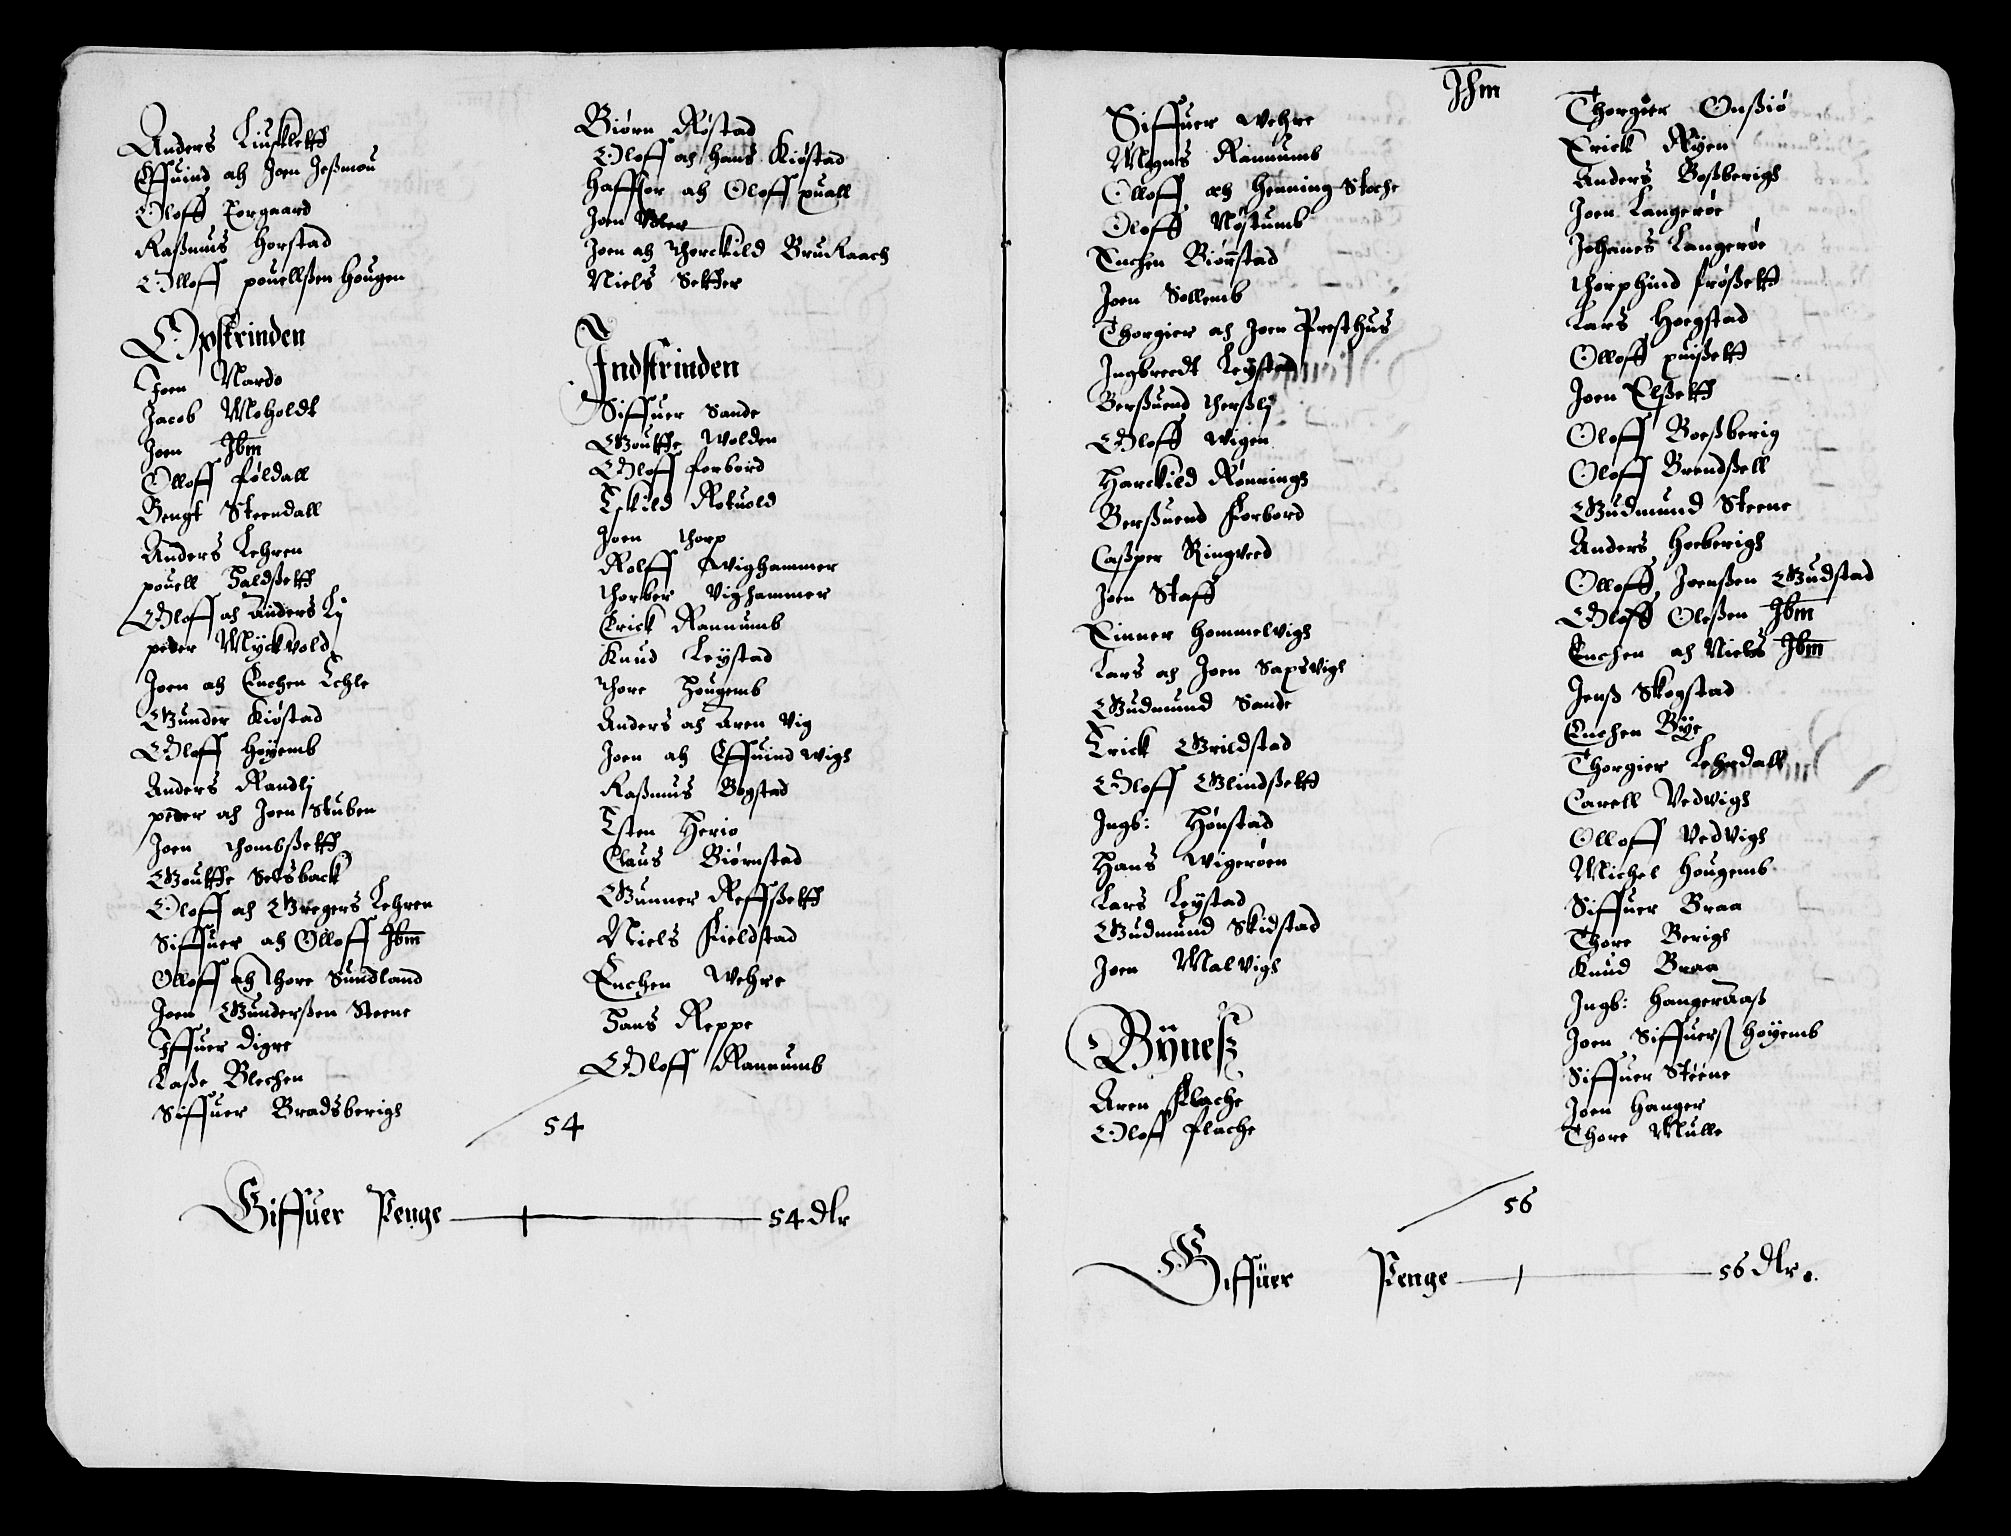 Anders Liuskleett
Effuind och Joen Jeßmou
Oloff Torgaard
Raßmus Horstad
Olloff pouellßen Hougen
Opstrinden
Joen Nardo
Jacob Moholdt
Joen Ibm
Olloff Føldall
Bengt Steendall
Anders Lehren
pouell Saldßett
Oloff och Anders Lij
peder Myckvold
Joen och Enchen Lehle
Gunder Kiøstad
Oloff Høyemb
Anders Randlj
peder och Joen Stuben
Joen Thombßett
Goutte Selsback
Oloff och Gregers Lehren
Siffuer och Olloff Ibm
Olloff och Thore Sundland
Joen Gunderßen Steene
Iffuer Digre
Laße Blechen
Siffuer Bradsberigh
Biørn Røstad
Oloff och Hans Kiøstad
Haffuor och Oloff puall
Joen Vller
Joen och Thorckild Brukaach
Niels Setter
Indstrinden
Siffuer Sande
Goutte Wolden
Oloff Forbord
Eskild Rotuold
Joen Thorp
Rolff Wighammer
Thorber Vighammer
Erick Rannumb
Knud Leystad
Thore Hougemb
Anders och Aren Vig
Joen och Effuind Wigh
Raßmus Bogstad
Esten Herio
Claus Biørnstad
Gunner Reffßett
Niels Fieldstad
Enchen Wehre
Hans Reppe
Oloff Rannumb
54
Giffuer Penge 54 dlr
Ihm
Siffuer Wehre
Mogns Rannumb
Olloff och Henning Stoche
Oloff Nøstumb
Enchen Biørnstad
Joen Sollemb
Thorgier och Joen Presthus
Ingbredt Leystad
Berßuend Therßlj
Oloff Wigen
Harckild Rønnings
Berßuend Forbord
Caßper Ringveed
Joen Staff
Einner Hommelvigh
Lars och Joen Sapsvigh
Gudmund Sande
Erick Grildstad
Oloff Blindßett
Ingb: Hønstad
Hans Wigerøen
Lars Leystad
Gudmund Skidstad
Joen Malvigh
Byneß
Aren Flache
Oloff Flache
Thorgier Onßiø
Erick Ryen
Anders Boßberigh
Joen Langerøe
Johanes Langerøe
Thorphind Frøßett
Lars Hogstad
Olloff puißett
Joen Elßett
Oloff Boeßberig
Oloff Brendßell
Gudmund Steene
Anders Hoeberigh
Olloff Joenßen Gudstad
Oloff Olßen Ibm
Enchen och Niels Ibm
Jenß Skogstad
Enchen Bÿe
Thorgier Lehrdall
Carell Vedvigh
Olloff Vedvigh
Michel Hougemb
Siffuer Braa
Thore Berigh
Knud Braa
Ingb: Hangeraaß
Joen Siffuerß Høyemb
Siffuer Steene
Joen Hanger
Thore Mulle
56
Giffüer Penge 56 dlr.